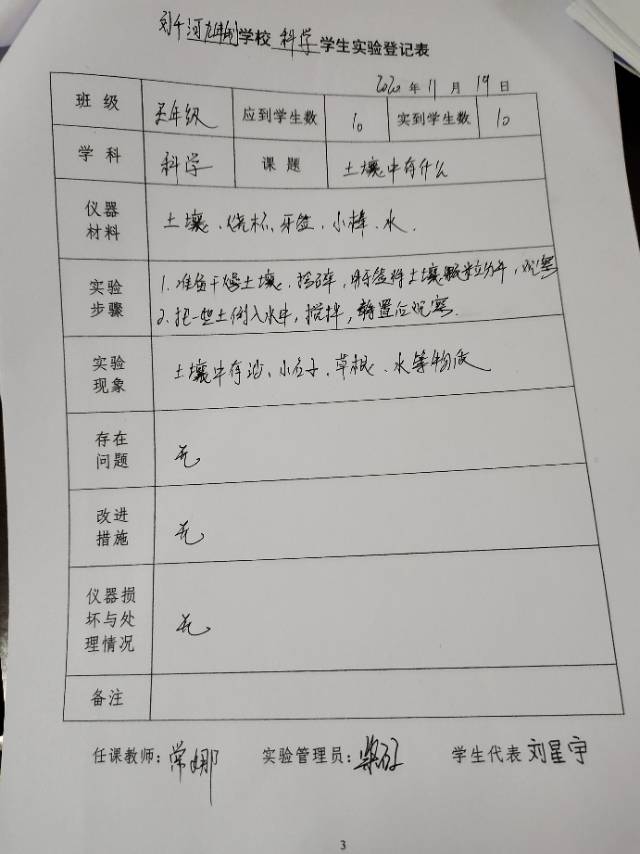 刘千河九年制学校 科学 学生实验登记表
2020 年 11 月 19 日
班级 五年级 应到学生数 10 实到学生数 10
学科 科学 课题 土壤中有什么
仪器材料 土壤、烧杯、牙签、小棒、水.
实验步骤 1.准备干燥土壤、捻碎,用牙签将土壤颗粒分开,观察
2.把一些土倒入水中,搅拌,静置后观察.
实验现象 土壤中有沙、小石子、草根、水等物质
存在问题 无
改进措施 无
仪器损坏与处理情况 无
备注
任课教师:常娜 实验管理员: 学生代表 刘星宇
3